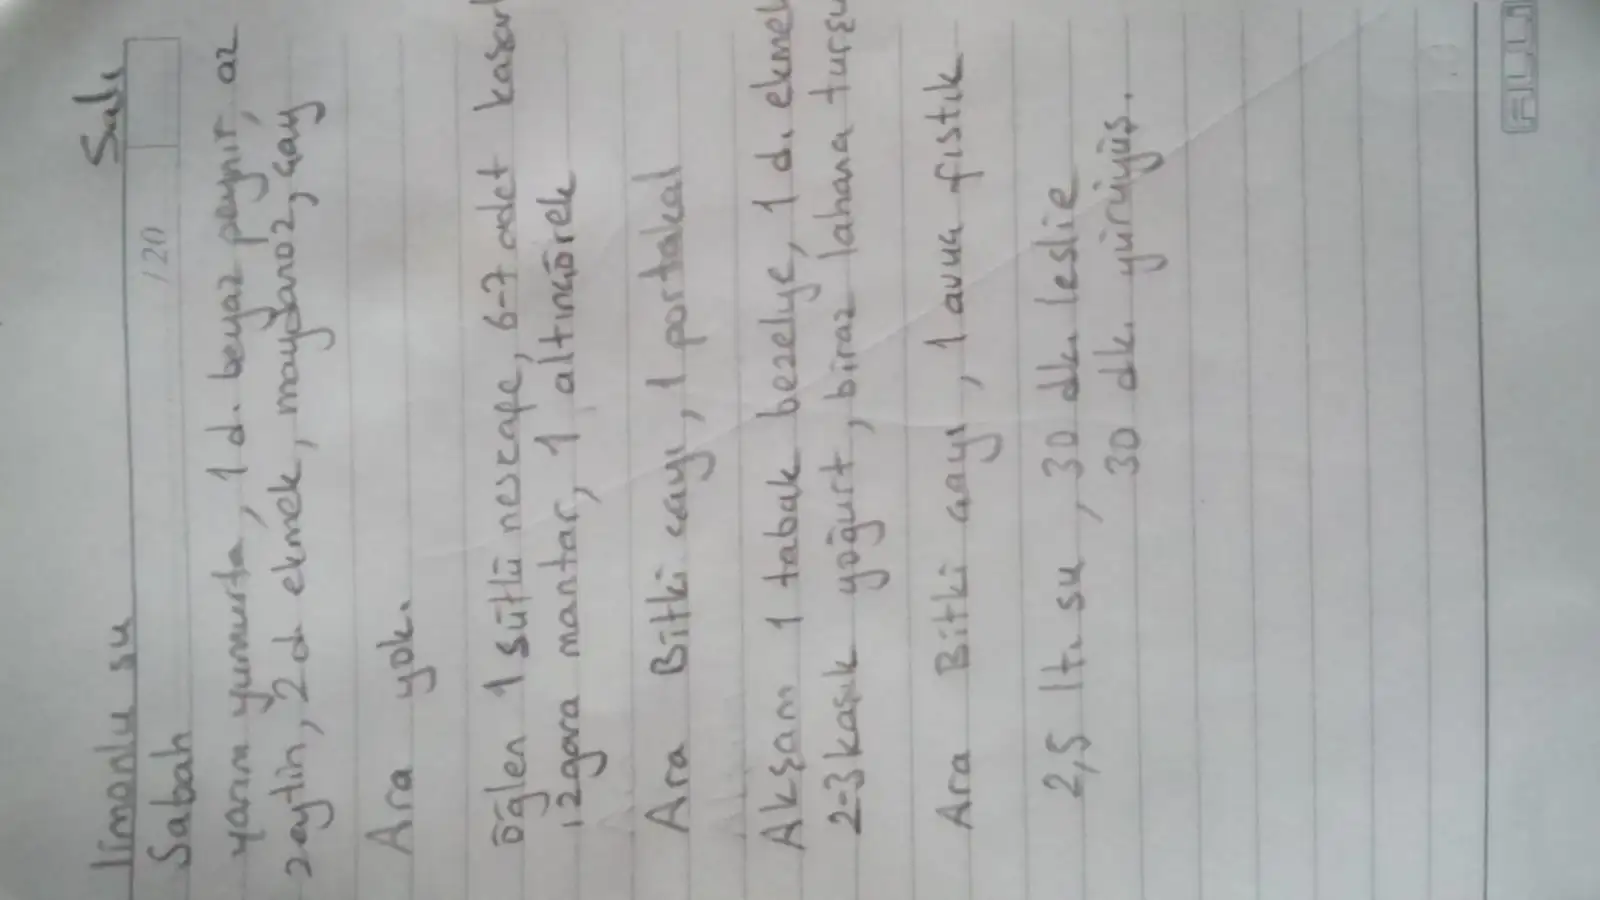 limonlu su Salı
Sabah /20
yarım yumurta, 1 d. beyaz peynir, az
zeytin, 2 d. ekmek, maydanoz, çay
Ara yok.
öğlen 1 sütlü nescafe, 6-7 adet kaşarlı
ızgara mantar, 1 altınçörek
Ara Bitki çayı, 1 portakal
Akşam 1 tabak bezelye, 1 d. ekmek
2-3 kaşık yoğurt, biraz lahana turşu
Ara Bitki çayı, 1 avuç fıstık
2,5 lt. su, 30 dk. leslie
30 dk. yürüyüş.